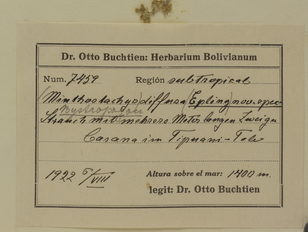 Dr. Otto Buchtien: Herbarium Bolivianum
Num. 7459 Región subtropical
(Minthostachys) diffusa (Epling) nov. spec.
Bystropogon
Strauch mit mehrere Meter langen Zweigen
Casana im Tipuani-Tale
1922 5/VIII Altura sobre el mar: 1400 m.
legit: Dr. Otto Buchtien